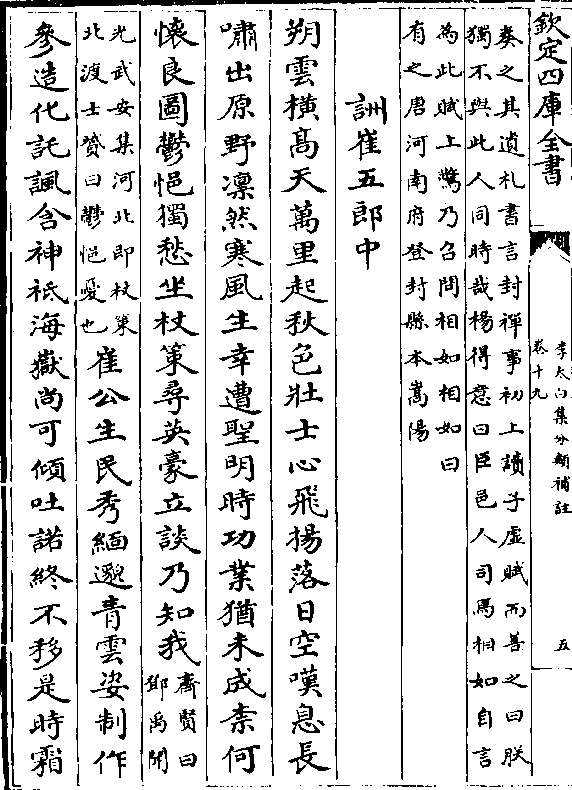 欽定四庫全書
李太白集分類補註
卷十九
五
奏之其遺札書言封禪事初上讀子虛賦而善之曰朕
獨不與此人同時哉楊得意曰臣邑人司馬相如自言
為此賦上驚乃召問相如相如曰
有之唐河南府登封縣本嵩陽
詶崔五郎中
朔雲橫高天萬里起秋色壯士心飛揚落日空嘆息長
嘯出原野凛然寒風生幸遭聖明時功業猶未成柰何
懷良圖鬱悒獨愁坐杖策尋英豪立談乃知我齊賢曰
鄧禹聞
光武安集河北即杖策
北渡士贇曰鬱悒憂也
崔公生民秀緬邈青雲姿制作
參造化託諷含神祇海嶽尚可傾吐諾終不移是時霜